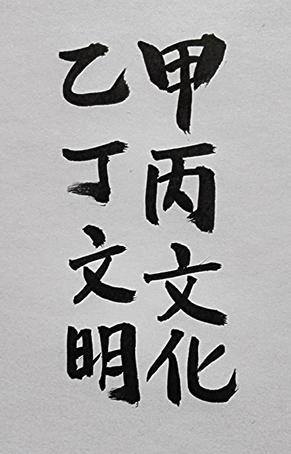 甲丙文化
乙丁文明